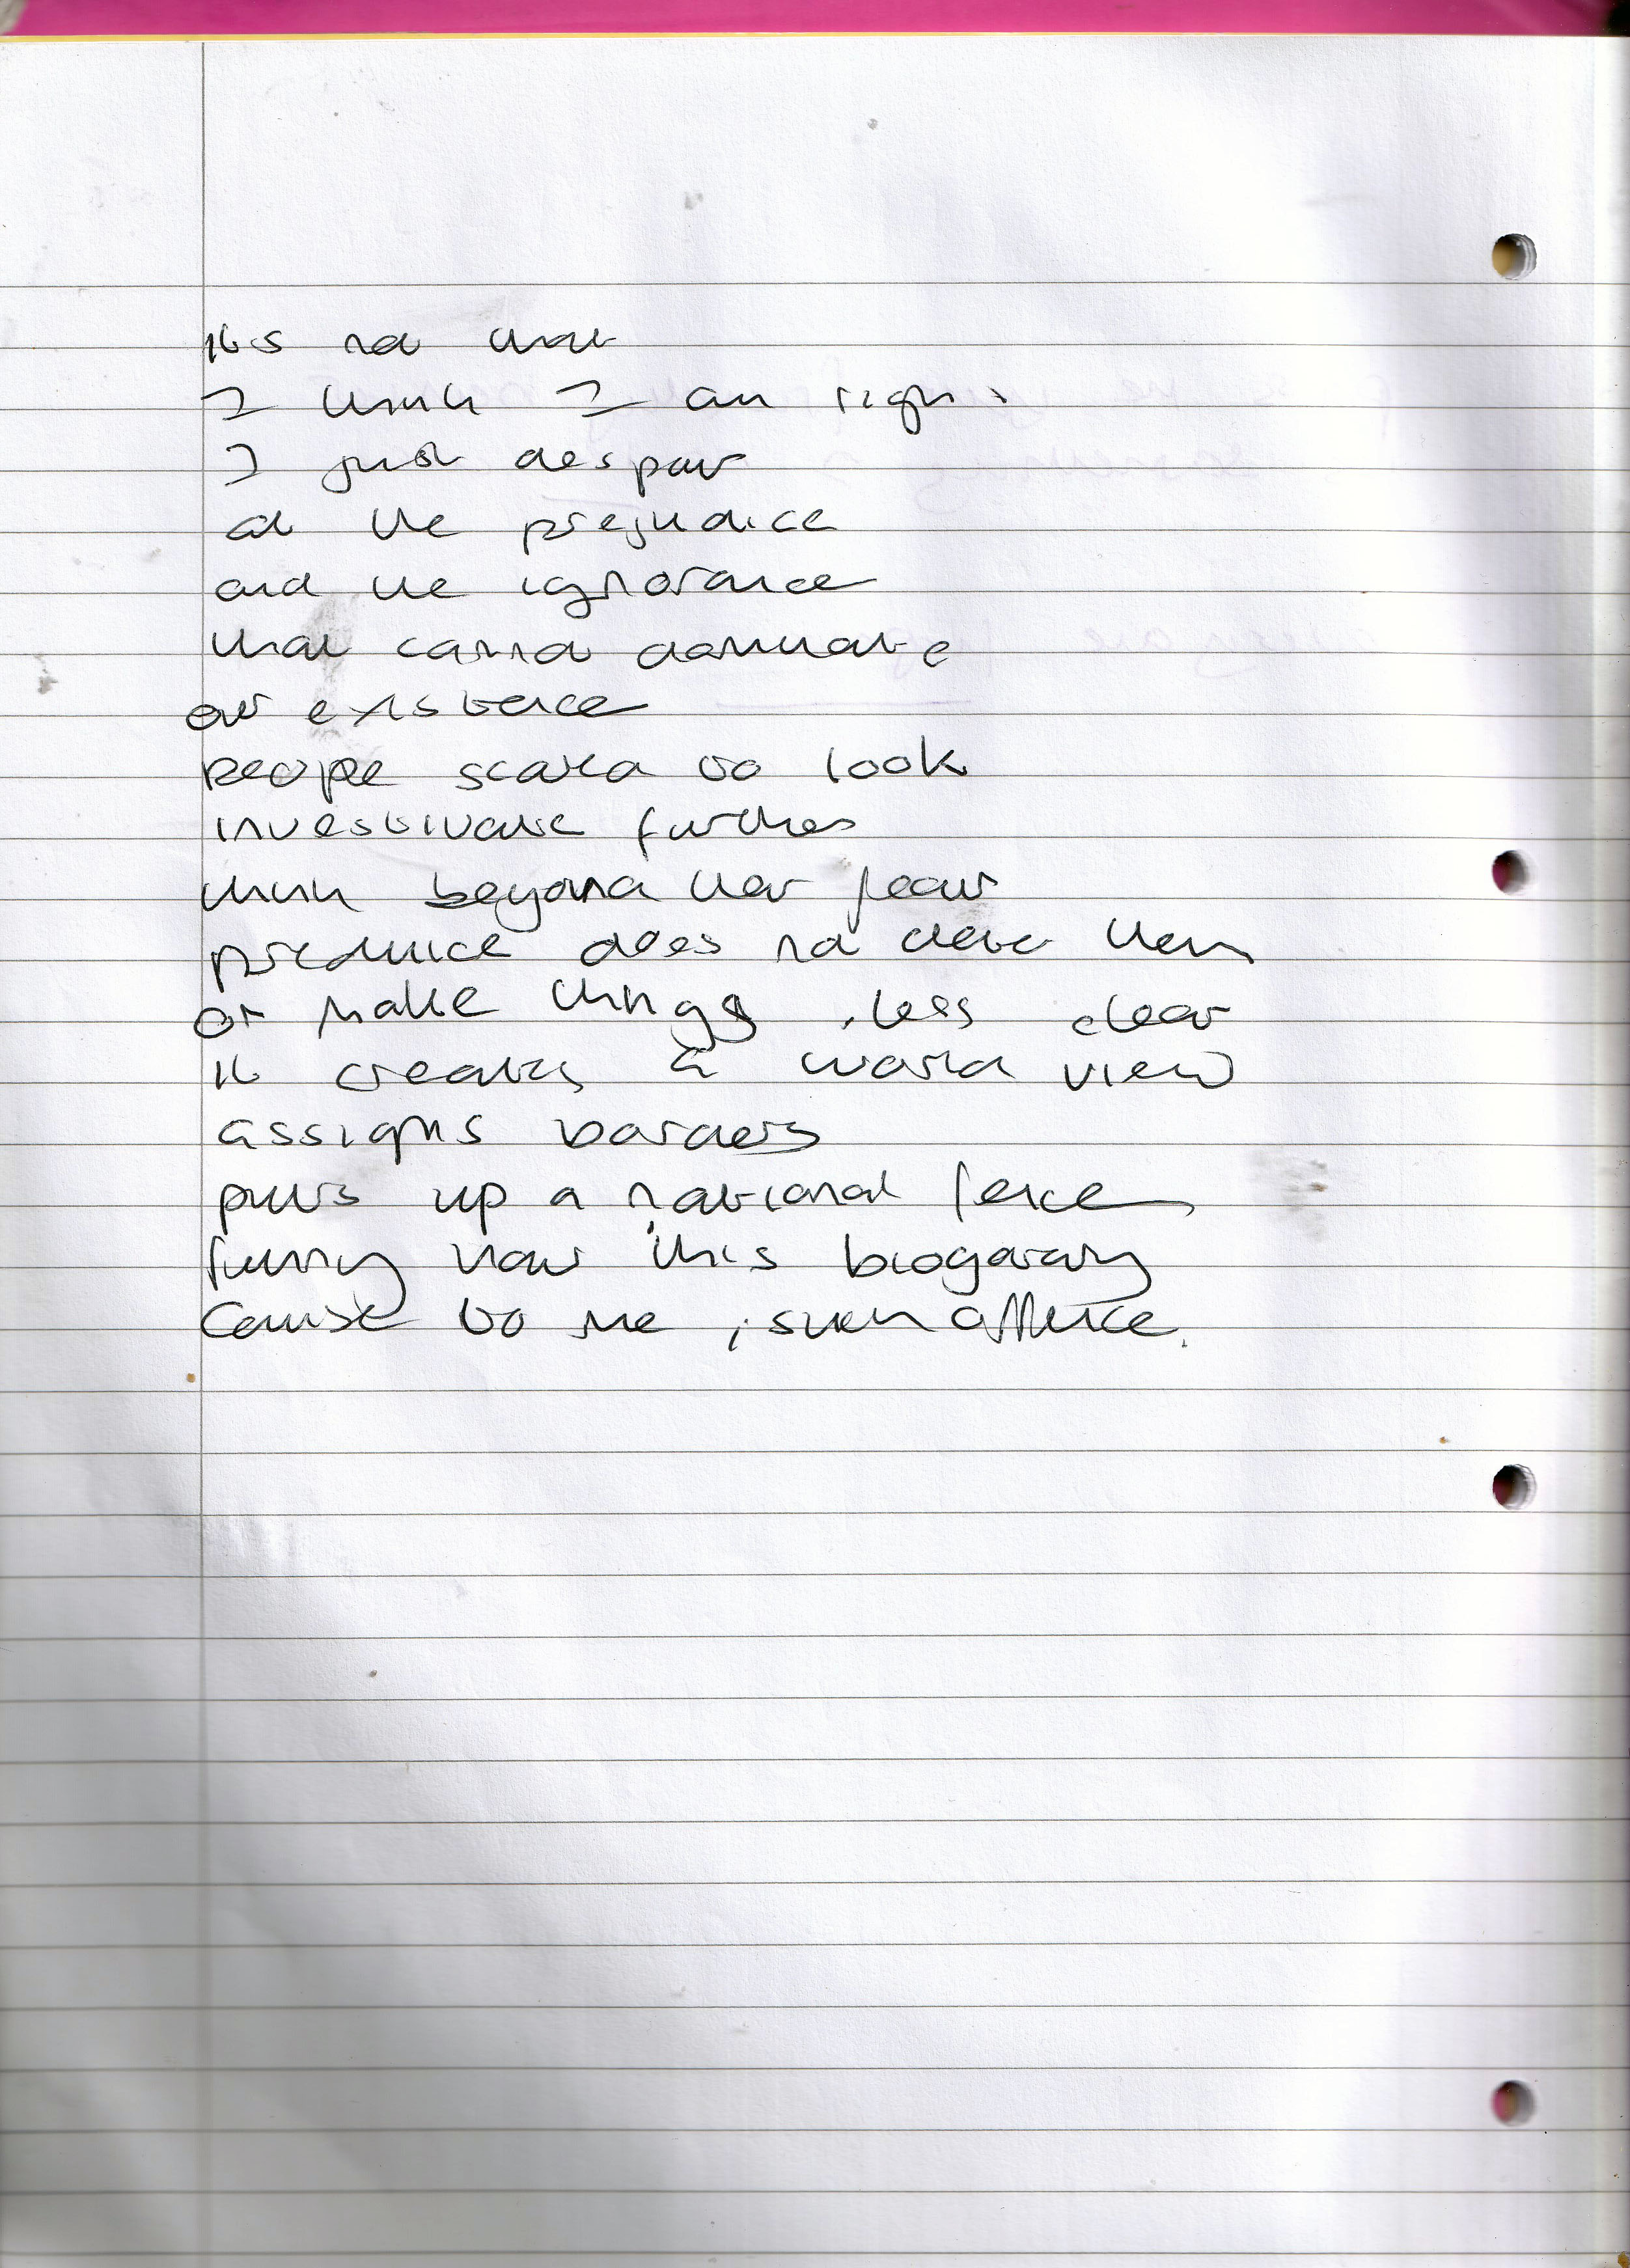 its not that
I think I am right
I just despair
at the prejudice
and the ignorance
that cannot dominate
our existence
people scared to look
investigate further
think beyond their fear
prejudice does not deter them
or make things less clear
it creates a world view
assigns borders
puts up a national fence
funny how this biogarary
cause to me, such offence.